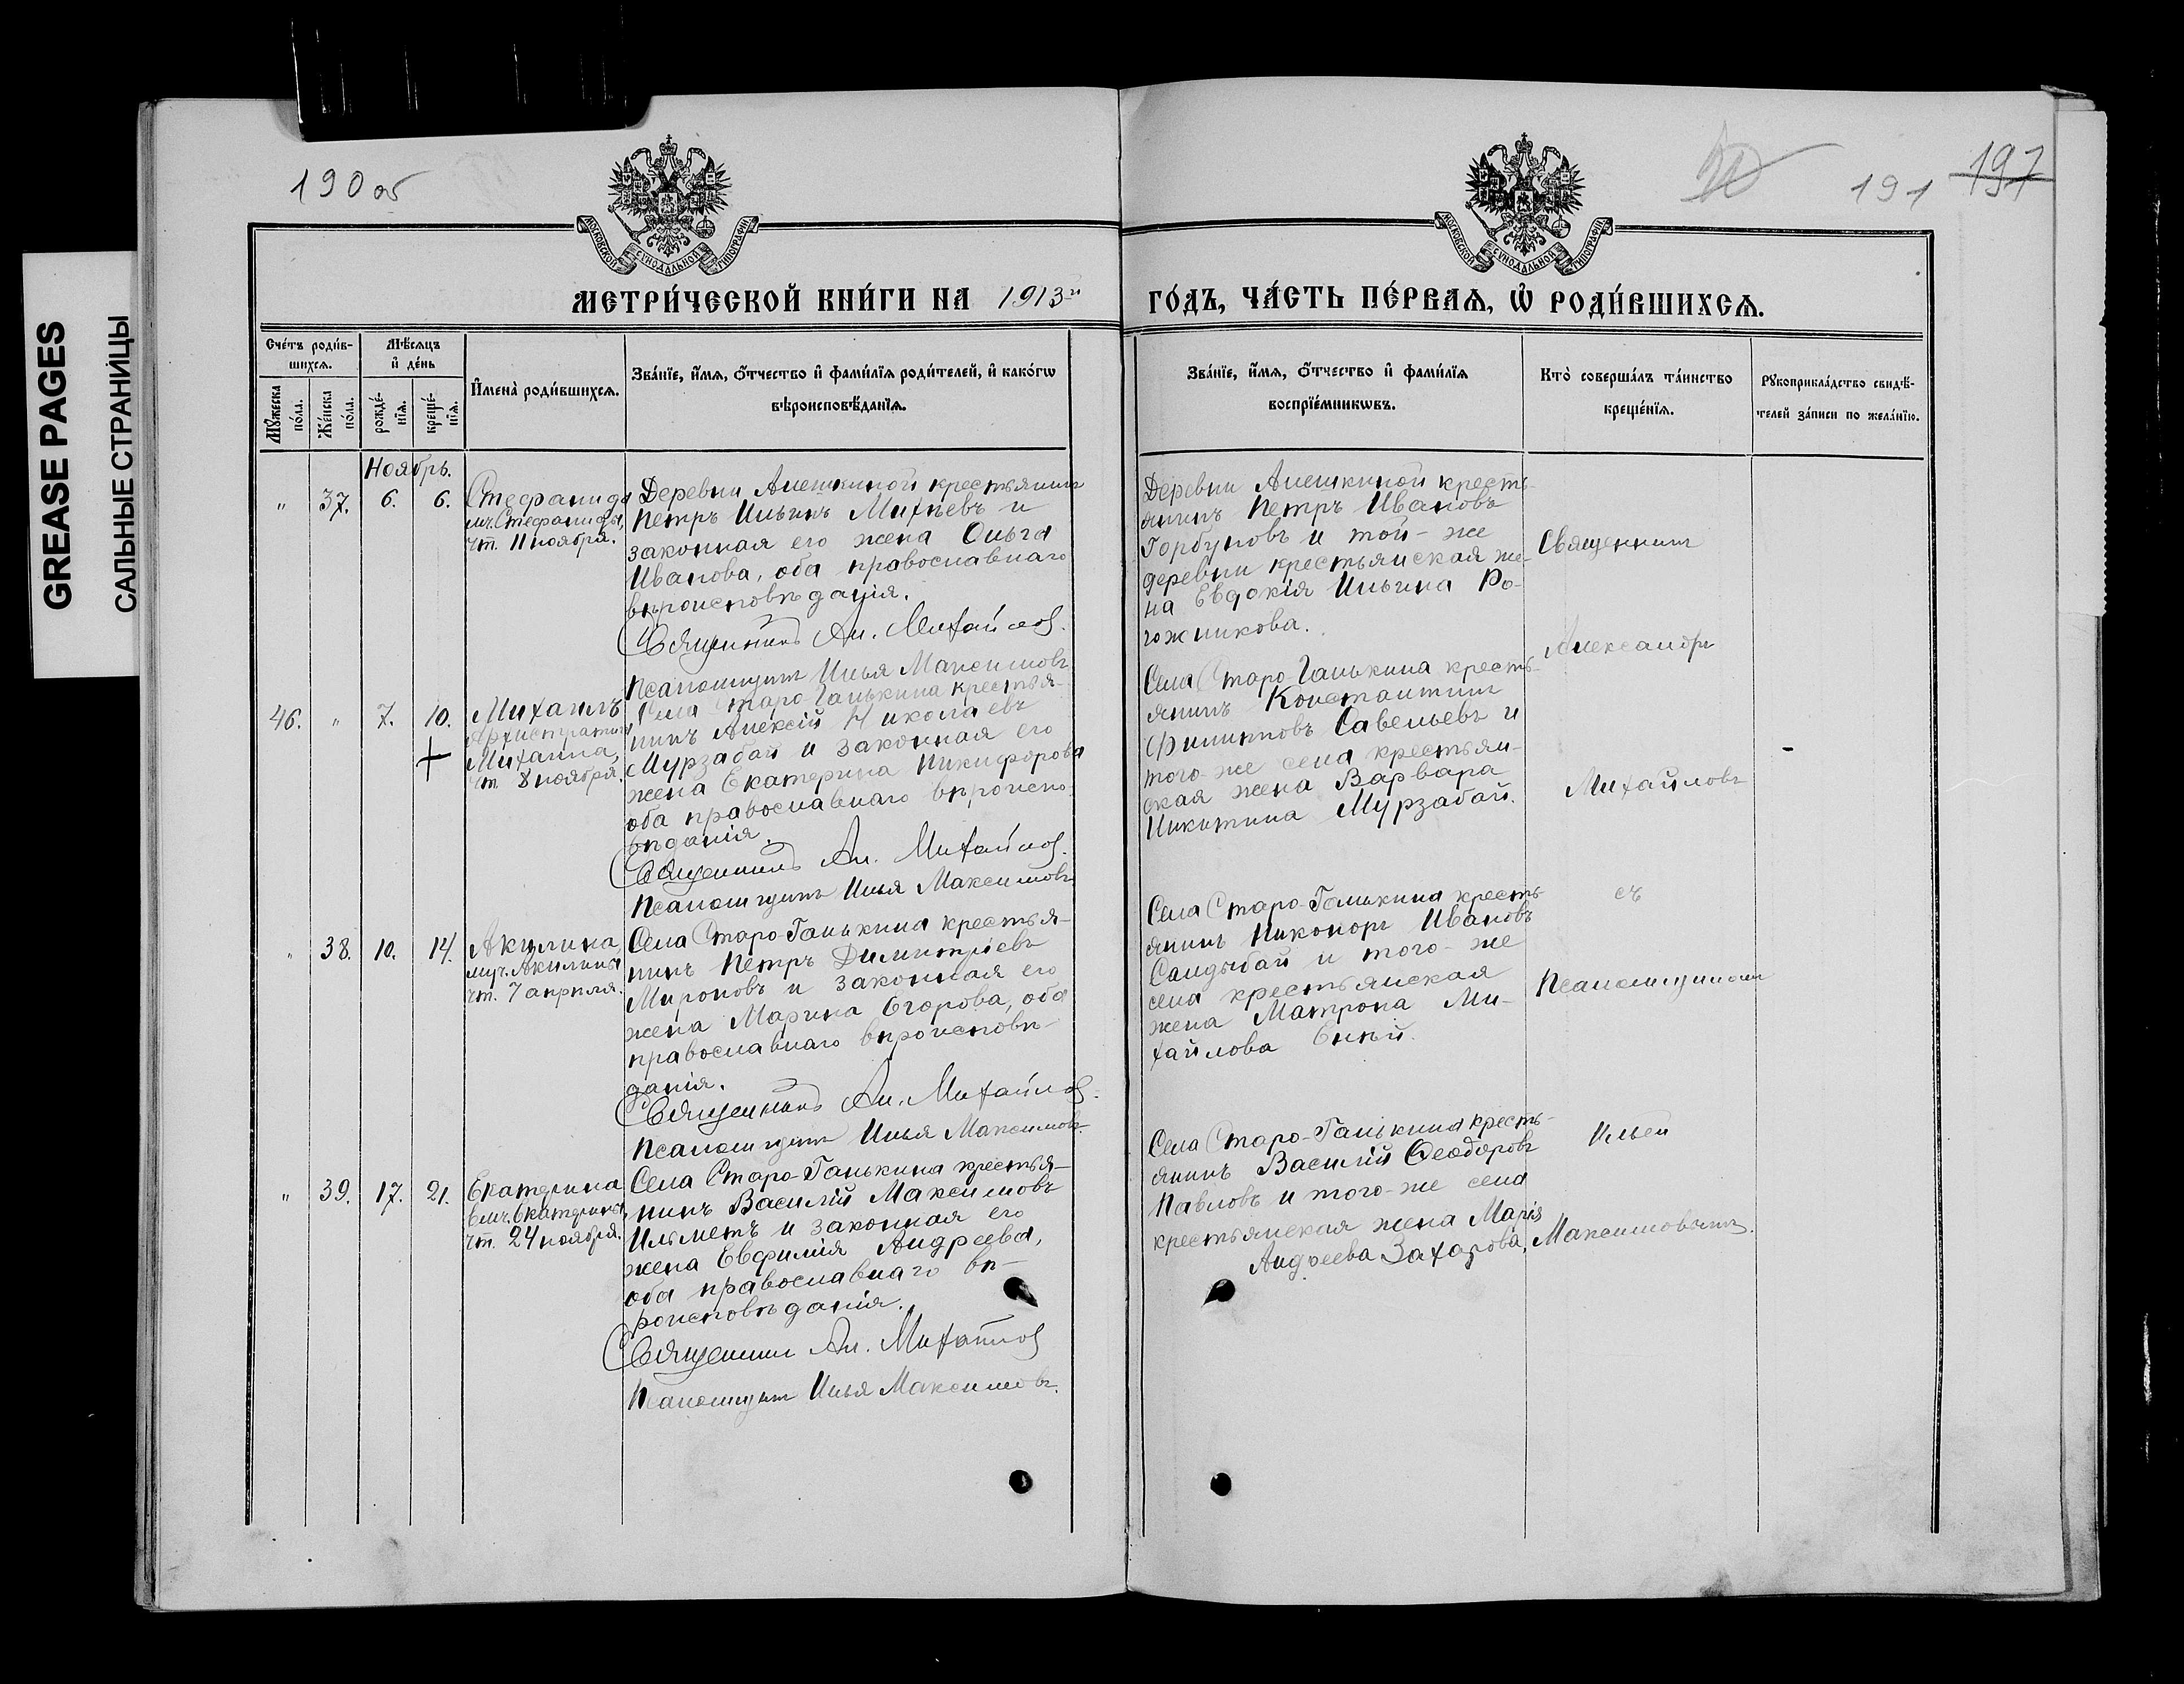 GREASE PAGES
САЛЬНЫЕ СТРАНИЦЫ
190 об
МОСКОВСКОЙ СѴНОДАЛЬНОЙ ТИПОГРАФІИ
МЕТРИ́ЧЕСКОЙ КНИ́ГИ НА 1913й
Сче́тъ роди́в-
шихсѧ.
Мѣ́сѧцъ
и҆ де́нь
Мꙋ́жеска
по́ла.
Же́нска
по́ла.
рожде́-
нїѧ.
креще́-
нїѧ.
И҆мена̀ роди́вшихсѧ.
Зва́нїе, и҆́мѧ, ѻ҆́тчество и҆ фами́лїѧ роди́телей, и҆ како́гѡ
вѣроисповѣ́данїѧ.
Ноябрь.
" 37. 6. 6.
Стефанида
мч. Стефаниды,
чт. 11 ноября.
Деревни Алешкиной крестьянинъ
Петръ Ильинъ Михѣевъ и
законная его жена Ольга
Иванова, оба православнаго
вѣроисповѣданія.
Священникъ Ал. Михайлов.
Псаломщикъ Илья Максимовъ
46. " 7. 10.
Михаилъ
Архистратига
Михаила,
чт. 8 ноября.
Села Старо-Ганькина крестья-
нинъ Алексій Николаевъ
Мурзабай и законная его
жена Екатерина Никифорова
оба православнаго вѣроиспо-
вѣданія.
Священникъ Ал. Михайлов.
Псаломщикъ Илья Максимовъ
" 38. 10. 14.
Акилина,
муч. Акилины
чт. 7 апрѣля.
Села Старо-Ганькина крестья-
нинъ Петръ Димитріевъ
Мироновъ и законная его
жена Марина Егорова, оба
православнаго вѣроисповѣ-
данія.
Священникъ Ал. Михайлов.
Псаломщикъ Илья Максимовъ
" 39. 17. 21.
Екатерина
Вмч. Екатерины,
чт. 24 ноября.
Села Старо-Ганькина крестья-
нинъ Василій Максимовъ
Ильметъ и законная его
жена Евфимія Андреева,
оба православнаго вѣ-
роисповѣданія.
Священникъ Ал. Михайлов
Псаломщикъ Илья Максимовъ.
191 197
МОСКОВСКОЙ СѴНОДАЛЬНОЙ ТИПОГРАФІИ
ГО́ДЪ, ЧА́СТЬ ПЕ́РВАѦ, Ѡ҆ РОДИ́ВШИХСѦ.
Зва́нїе, и҆́мѧ, ѻ҆́тчество и҆ фами́лїѧ
воспрїе́мникѡвъ.
Кто̀ соверша́лъ та́инство
креще́нїѧ.
Рꙋкоприкла́дство свидѣ́-
телей за́писи по жела́нїю.
Деревни Алешкиной кресть-
янинъ Петръ Ивановъ
Горбуновъ и той-же
деревни крестьянская же-
на Евдокія Ильина Ро-
гожникова.
Села Старо-Ганькина кресть-
янинъ Константинъ
Филипповъ Савельевъ и
того-же села крестьян-
ская жена Варвара
Никитина Мурзабай.
Села Старо-Ганькина кресть-
янинъ Никоноръ Ивановъ
Сандыбай и того-же
села крестьянская
жена Матрона Ми-
хайлова
Села Старо-Ганькина кресть-
янинъ Василій Ѳеодоровъ
Павловъ и того-же села
крестьянская жена Марія
Андреева Захарова.
Священникъ
Александръ
Михайловъ
съ
Псаломщикомъ
Ильей
Максимовымъ.